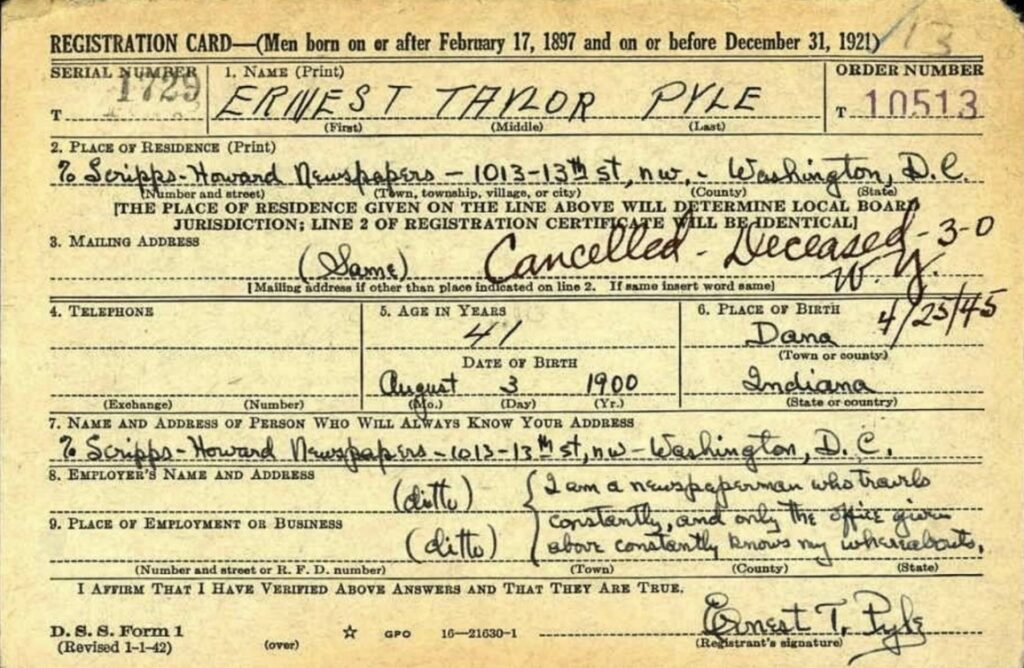 13
REGISTRATION CARD—(Men born on or after February 17, 1897 and on or before December 31, 1921)
SERIAL NUMBER
1. NAME (Print)
ORDER NUMBER
T 1729
ERNEST TAYLOR PYLE
T 10513
(First) (Middle) (Last)
2. PLACE OF RESIDENCE (Print)
% Scripps-Howard Newspapers — 1013-13th st, nw, - Washington, D.C.
(Number and street) (Town, township, village, or city) (County) (State)
[THE PLACE OF RESIDENCE GIVEN ON THE LINE ABOVE WILL DETERMINE LOCAL BOARD
JURISDICTION; LINE 2 OF REGISTRATION CERTIFICATE WILL BE IDENTICAL]
3. MAILING ADDRESS
(Same)
Cancelled - Deceased - 3-0
[Mailing address if other than place indicated on line 2. If same insert word same]
4/25/45
4. TELEPHONE
5. AGE IN YEARS
6. PLACE OF BIRTH
41
Dana
(Town or county)
DATE OF BIRTH
August 3 1900
Indiana
(Exchange) (Number)
(Mo.) (Day) (Yr.)
(State or country)
7. NAME AND ADDRESS OF PERSON WHO WILL ALWAYS KNOW YOUR ADDRESS
% Scripps-Howard Newspapers - 1013-13th st, nw - Washington, D.C.
8. EMPLOYER'S NAME AND ADDRESS
(ditto)
I am a newspaperman who travels
constantly, and only the office given
above constantly knows my whereabouts.
9. PLACE OF EMPLOYMENT OR BUSINESS
(ditto)
(Number and street or R. F. D. number) (Town) (County) (State)
I AFFIRM THAT I HAVE VERIFIED ABOVE ANSWERS AND THAT THEY ARE TRUE.
Ernest T. Pyle
D. S. S. Form 1
(Revised 1-1-42) (over) ☆ GPO 16—21630-1
(Registrant's signature)